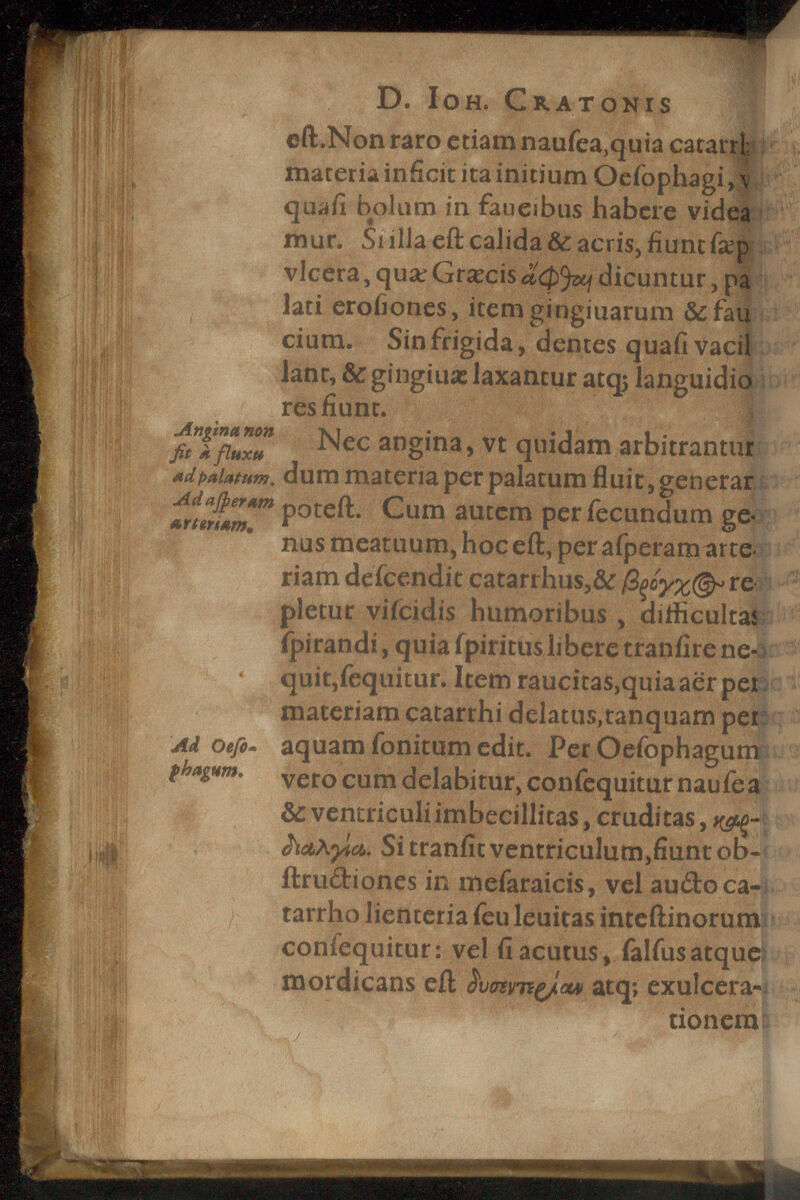 D. Ioh. Cratonis
eſt. Non raro etiam nauſea, quia catarrhi
materia inficit ita initium Oeſophagi, vt
quaſi bolum in faucibus habere videa-
mur. Si illa eſt calida & acris, fiunt ſæpe
vlcera, quæ Græcis ἄφθαι dicuntur, pa-
lati eroſiones, item gingiuarum & fau-
cium. Sin frigida, dentes quaſi vacil-
lant, & gingiuæ laxantur atq; languidio-
res fiunt.
Angina non
fit à fluxu
ad palatum.
Nec angina, vt quidam arbitrantur
dum materia per palatum fluit, generari
Ad aſperam
arteriam.
poteſt. Cum autem per ſecundum ge-
nus meatuum, hoc eſt, per aſperam arte-
riam deſcendit catarrhus, & βρόγχος re-
pletur viſcidis humoribus, difficultas
ſpirandi, quia ſpiritus libere tranſire ne-
quit, ſequitur. Item raucitas, quia aër per
materiam catarrhi delatus, tanquam per
Ad Oeſo-
phagum.
aquam ſonitum edit. Per Oeſophagum
vero cum delabitur, conſequitur nauſea
& ventriculi imbecillitas, cruditas, καρ-
διαλγία. Si tranſit ventriculum, fiunt ob-
ſtructiones in meſaraicis, vel aucto ca-
tarrho lienteria ſeu leuitas inteſtinorum
conſequitur: vel ſi acutus, ſalſus atque
mordicans eſt δυσεντερίαν atq; exulcera-
tionem